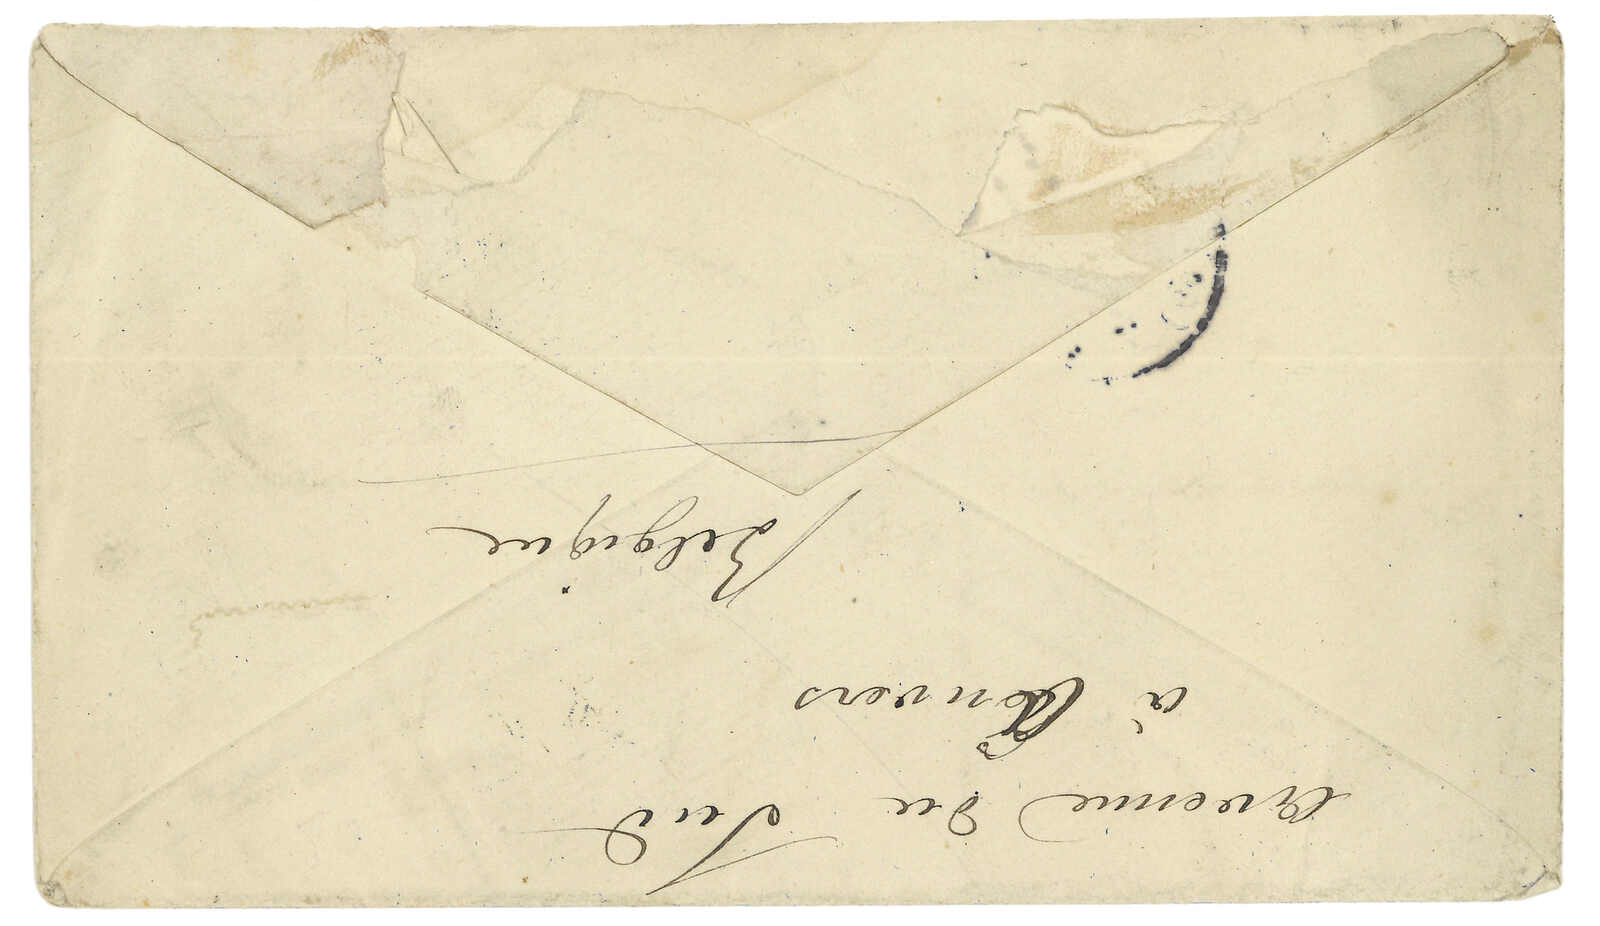 Avenue du Sud
à Anvers
Belgique